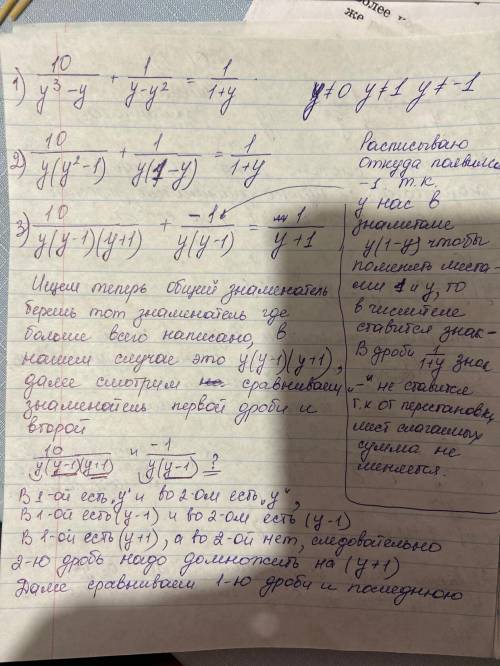 1) 10/(y³-y) + 1/(y-y²) = 1/(1+y)
y≠0 y≠1 y≠-1
2) 10/(y(y²-1)) + 1/(y(1-y)) = 1/(1+y)
3) 10/(y(y-1)(y+1)) + -1/(y(y-1)) = 1/(y+1)
Расписываю
откуда появилась
-1 т.к.
у нас в
знаменателе
y(1-y) чтобы
поменять места-
ми 1 и y, то
в числителе
ставится знак -
В дроби 1/(1+y) знак
„-“ не ставится
т.к от перестановки
мест слагаемых
сумма не
меняется.
Ищем теперь общий знаменатель
берешь тот знаменатель где
больше всего написано, в
нашем случае это y(y-1)(y+1),
далее смотрим сравниваем
знаменатель первой дроби и
второй
10/(y(y-1)(y+1)) и -1/(y(y-1)) ?
В 1-ой есть „y“ и во 2-ом есть „y“,
В 1-ой есть (y-1) и во 2-ом есть (y-1)
В 1-ой есть (y+1), а во 2-ой нет, следовательно
2-ю дробь надо домножить на (y+1)
Далее сравниваем 1-ю дробь и последнюю